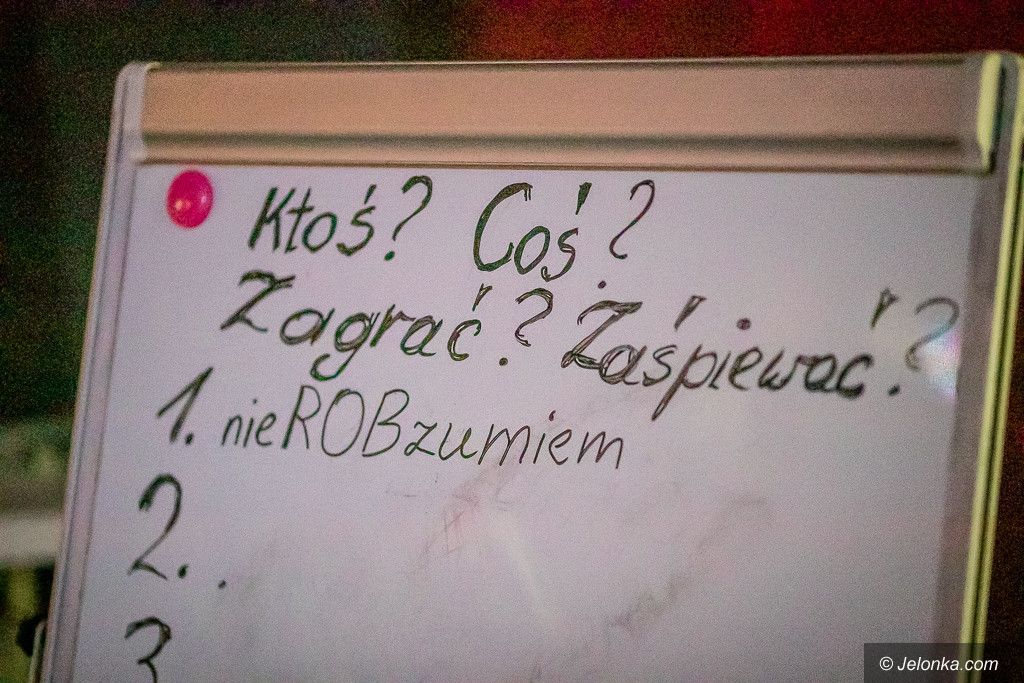 Ktoś? Coś?
Zagrać? Zaśpiewać?
1. nieROBzumiem
2..
3
© Jelonka.com